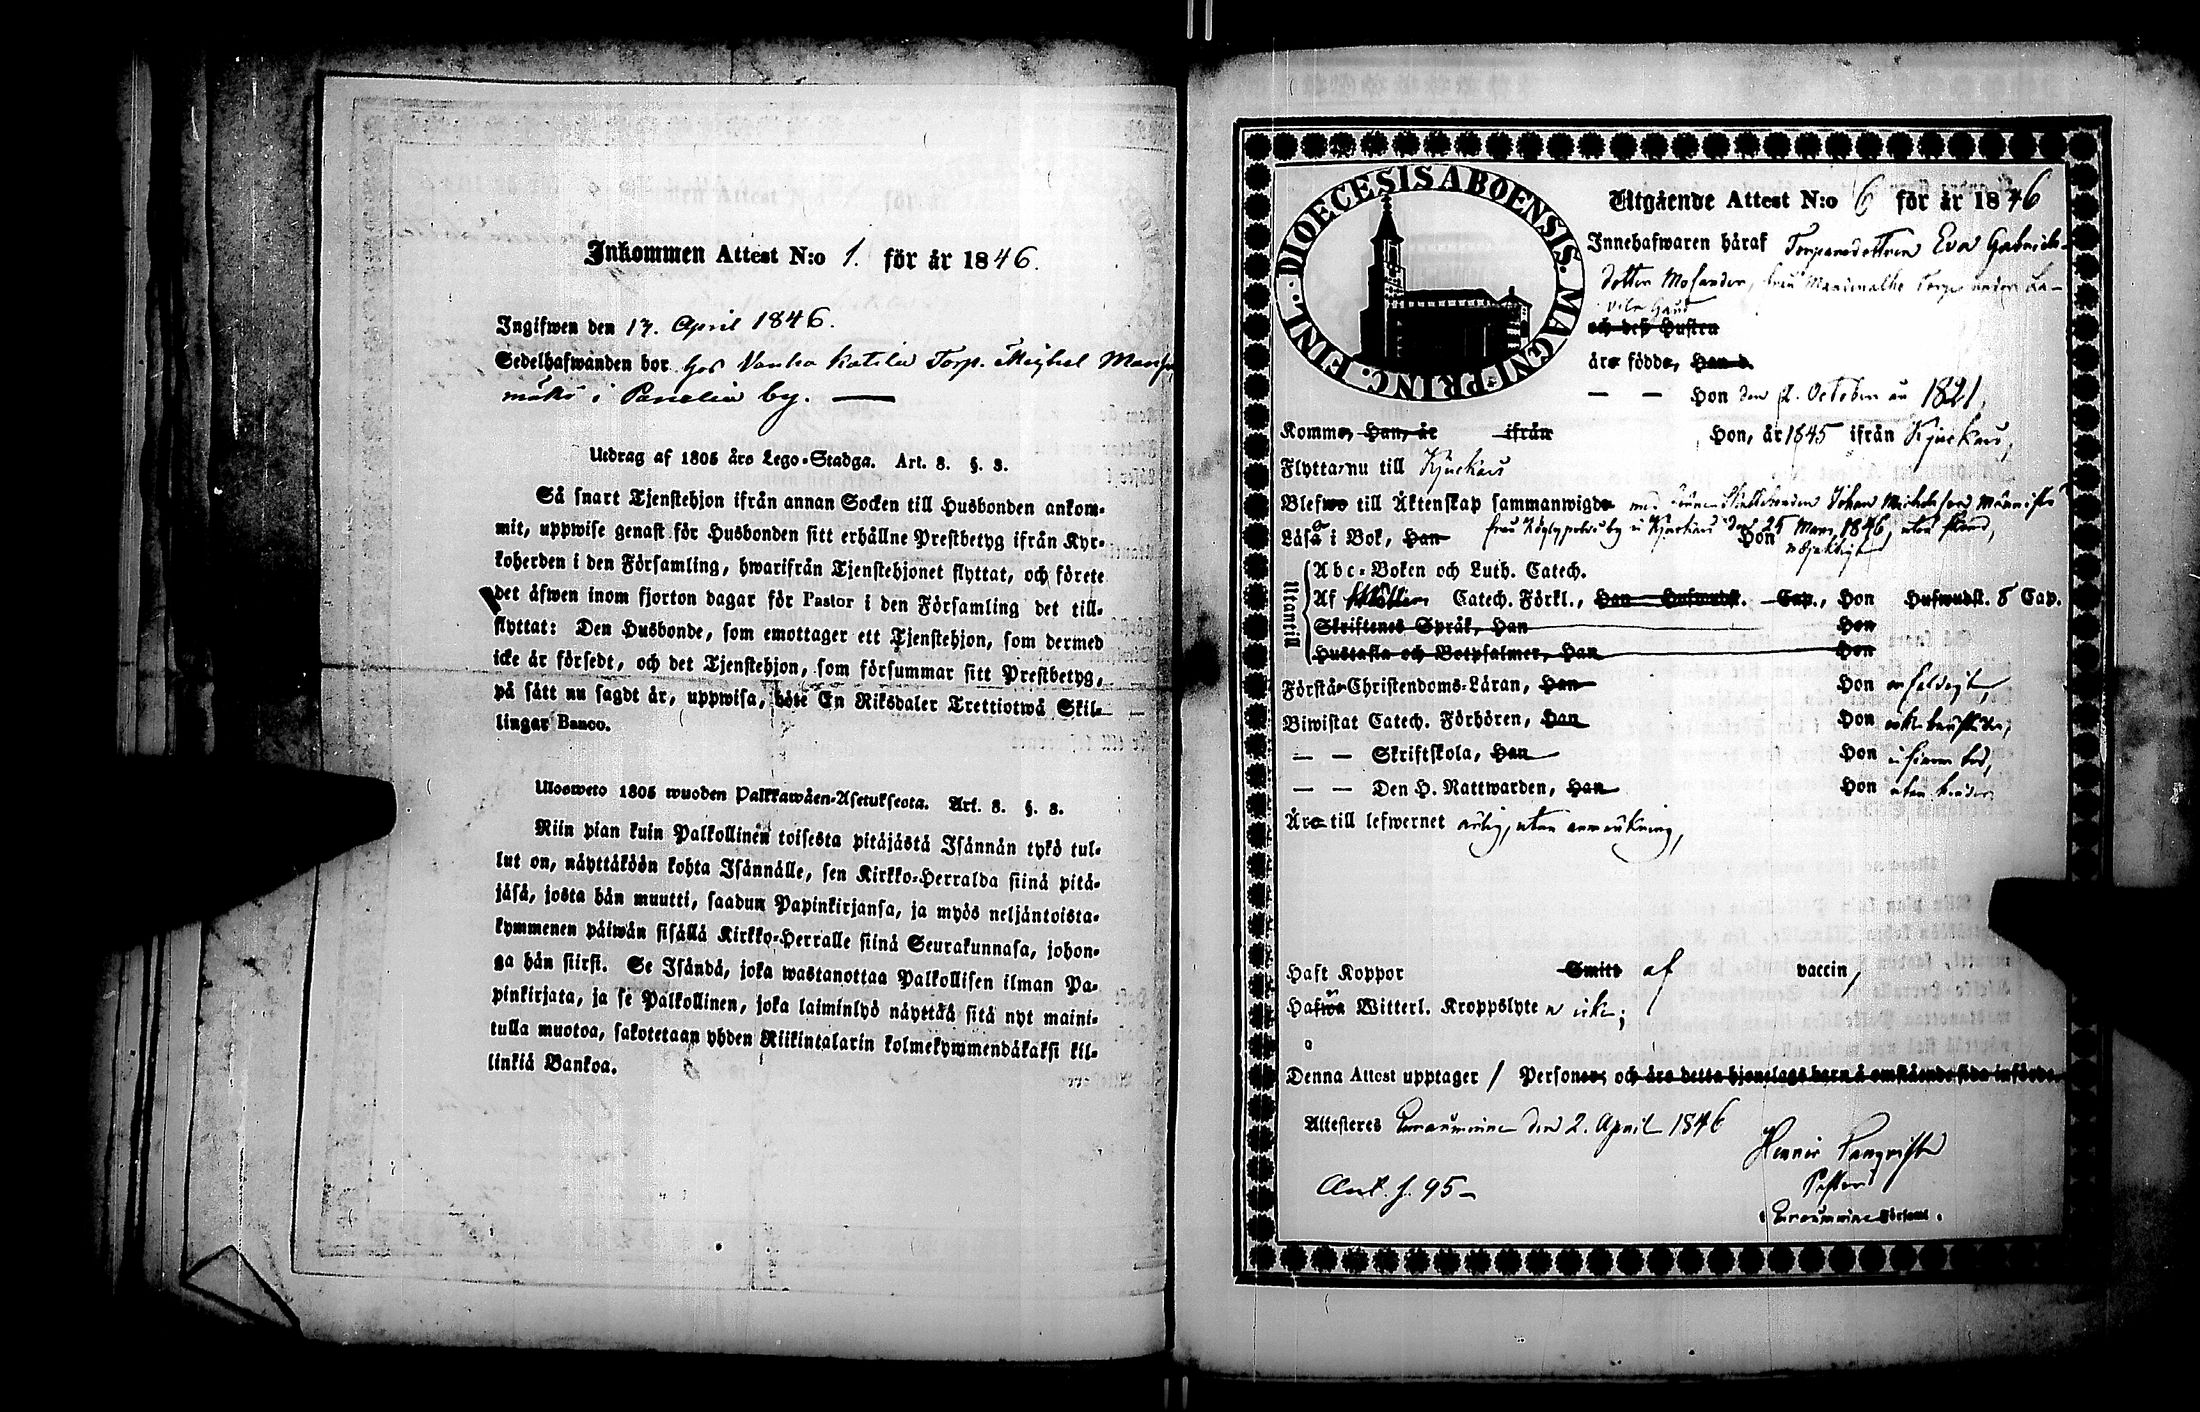 Inkommen Attest N:o 1. för år 1846.
Ingifwen den 17. April 1846.
Sedelhafwanden bor hos Vanha Katila Torp.
i Panelia by. —
Utdrag af 1805 års Lego-Stadga. Art. 8. §. 3.
Så snart Tjenstehjon ifrån annan Socken till Husbonden ankom-
mit, uppwise genast för Husbonden sitt erhållne Prestbetyg ifrån Kyr-
koherden i den Församling, hwarifrån Tjenstehjonet flyttat, och förete
det äfwen inom fjorton dagar för Pastor i den Församling det till-
flyttat: Den Husbonde, som emottager ett Tjenstehjon, som dermed
icke är försedt, och det Tjenstehjon, som försummar sitt Prestbetyg,
på sått nu sagdt är, uppwisa, böte En Riksdaler Trettiotwå Skil-
lingar Banco.
Ulosweto 1805 wuoden Palkkawäen-Asetuksesta. Art. 8. §. 3.
Niin pian kuin Palkollinen toisesta pitäjästä Isännän tykö tul-
lut on, näyttäköön kohta Isännälle, sen Kirkko-Herralda siinä pitä-
jäsä, josta hän muutti, saadun Papinkirjansa, ja myös neljäntoista-
kymmenen päiwän sisällä Kirkko-Herralle siinä Seurakunnasa, johon-
ga hän siirsi. Se Isändä, joka wastanottaa Palkollisen ilman Pa-
pinkirjata, ja se Palkollinen, joka laiminlyö näyttää sitä nyt maini-
tulla muotoa, sakotetaan yhden Riikintalarin kolmekymmendäkaksi kil-
linkiä Bankoa.
DIOECESIS ABOENSIS. MAGNI PRINC. FINL.
Utgående Attest N:o 6 för år 1846
Innehafwaren häraf Torparedottren Eva Gabriels-
dotter Molander, från Torp under La-
vila Gård
och deß Hustru
äro födde, Han d.
— — Hon den 2. October år 1821,
Komme, Han, år ifrån Hon, år 1845 ifrån Kjuckais,
Flytta nu till Kjuckais
Blefwo till Äktenskap sammanwigde med Johan Michelsson
från by i Kjuckais den 25 Mars 1846, utan
Läsa i Bok, Han Hon
Utantill
Abc-Boken och Luth. Catech.
Af Catech. Förkl., Han Hufwudst. Cap., Hon Hufwudst. 8 Cap.
Skriftenes Språk, Han Hon
Hustafla och Botpsalmer, Han Hon
Förstå Christendoms-Läran, Han Hon
Biwistat Catech. Förhören, Han Hon
— — Skriftskola, Han Hon i sinom tid,
— — Den H. Nattwarden, Han Hon utan hinder,
Äro till lefwernet ärlig, utan anmärkning,
Haft Koppor Smitt af vaccin,
Hafwa Witterl. Kroppslyte icke;
Denna Attest upptager 1 Personer, och äro detta hjonelags barn å omstående sida införde.
Attesteras Euraåminne den 2. April 1846
Pastor
Euraåminne Församl.
Ant. s. 95 —